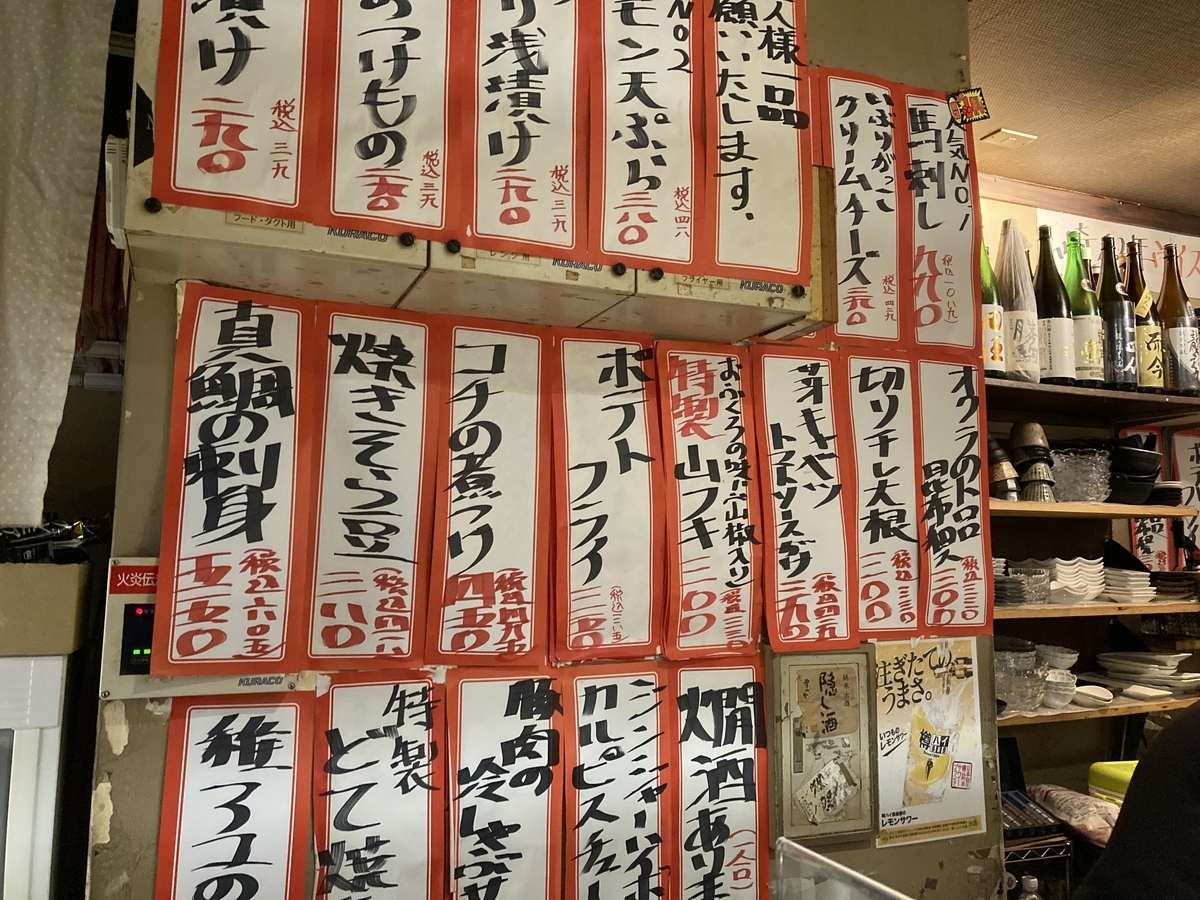 人気NO1
馬刺し
九九〇
いぶりがっこ
クリームチーズ
税込四二九
人様一品
願いいたします。
NO2
モン天ぷら
三八〇
税込四一八
り浅漬け
二九〇
税込三一九
つけもの
税込三一九
漬け
二九〇
税込三一九
フード・ダクト用
KURACO
レンジ用
KURACO
フライヤー用
KURACO
オクラのトロロ
昆布和え
三〇〇
税込三三〇
切り干し大根
三〇〇
税込三三〇
芽キャベツ
トマトソースがけ
三九〇
税込四二九
おふくろの味(山椒入り)
特製
山フキ
三〇〇
ポテト
フライ
コチの煮つけ
四五〇
焼きそら豆
三八〇
(税込四一八
真鯛の刺身
五五〇
税込六〇五
火炎伝
KURACO
燗酒あります
(一人口)
ジンジャーハイボ
カルピスチュー
豚肉の
冷しゃぶサ
特製
どて焼
稚アユの
隠し酒
注ぎたての、
うまさ。
いつもの
レモンサワー
樽ハイ
樽ハイ倶楽部の
レモンサワー
而今